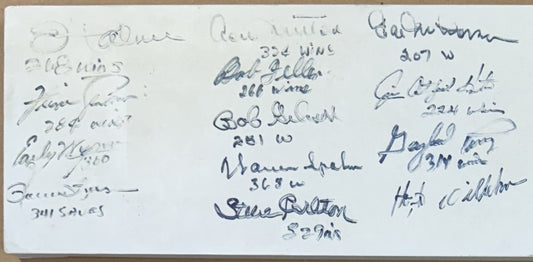 Palmer
268 wins
284 wins
Early Wynn
300
341 SAVES
Don Sutton
324 wins
Bob Feller
266 wins
Bob Gibson
251 W
Warren Spahn
363 W
Steve Carlton
329 wins
207 W
Jim Catfish Hunter
224 wins
Gaylord Perry
314 wins
Hoyt Wilhelm